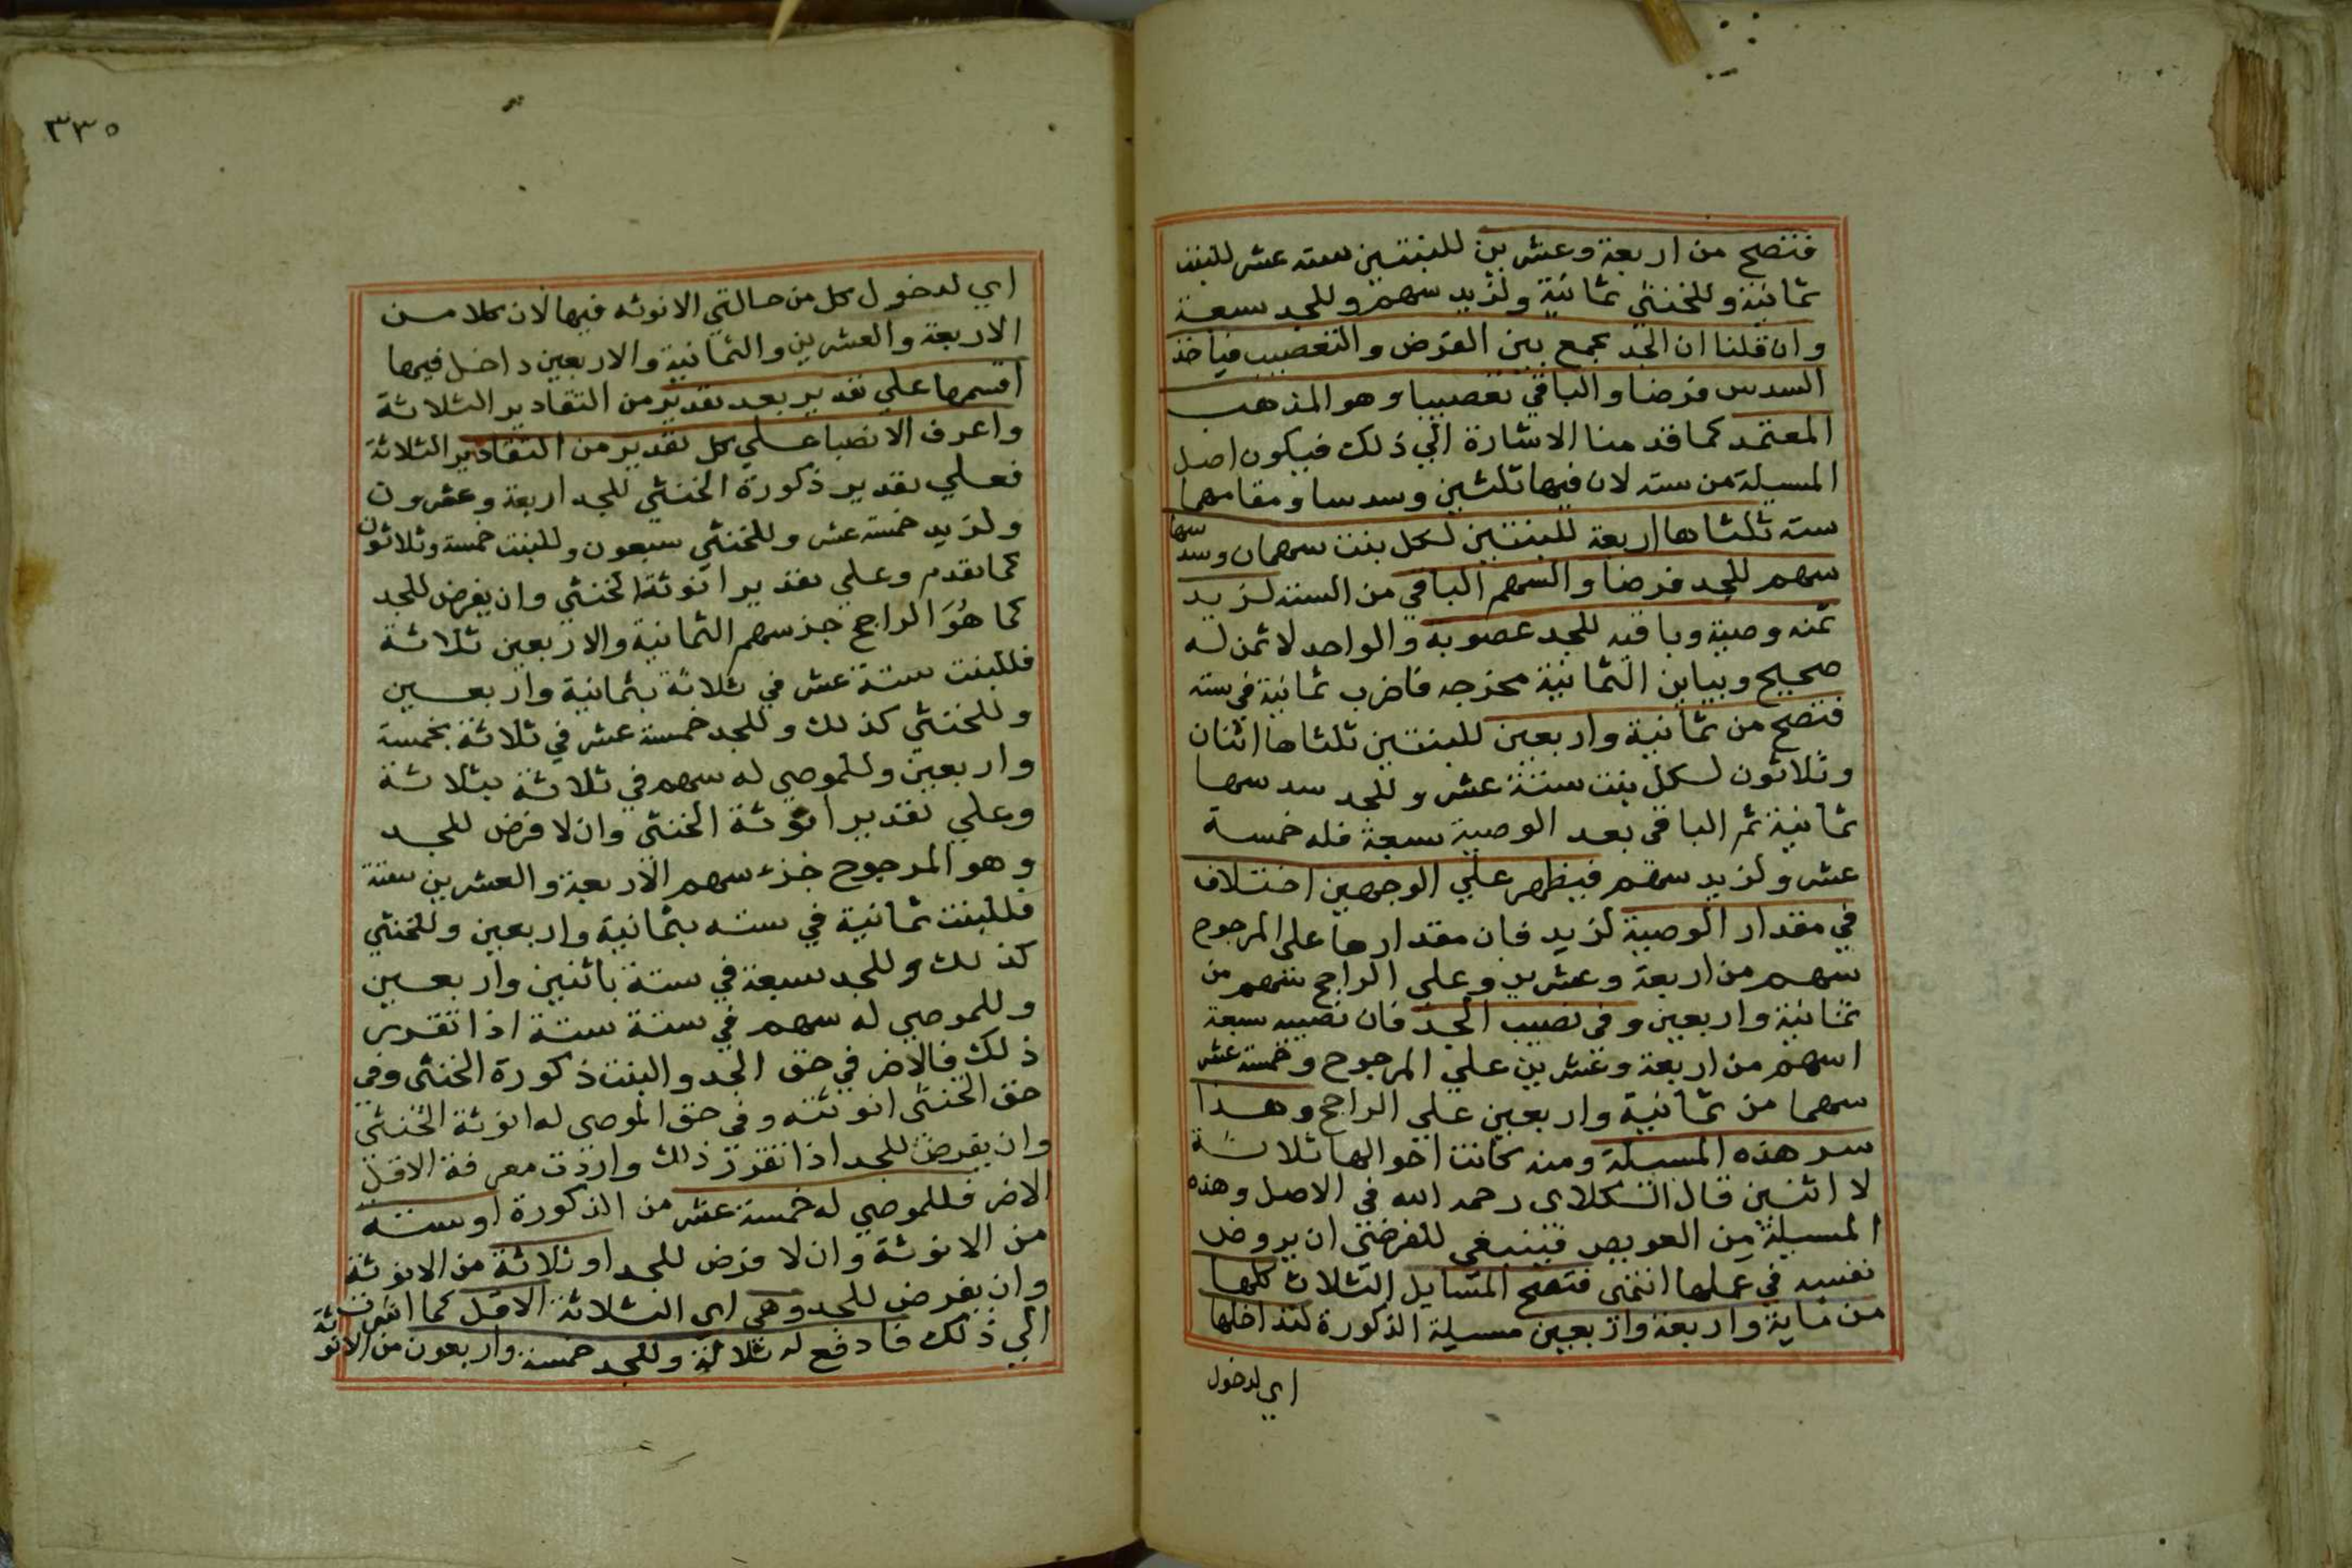 فتصح من اربعة وعشرين للبنتين سته عشر للبنت
ثمانية وللخنثي ثمانية ولزيد سهم وللجد سبعة
وان قلنا ان الجد يجمع بين الفرض والتعصيب فياخذ
السدس فرضا والباقي تعصيبا وهو المذهب
المعتمد كما قدمنا الاشارة الي ذلك فيكون اصل
المسيلة من سته لان فيها ثلثين وسدسا ومقامهما
سته ثلثاها اربعة للبنتين لكل بنت سهمان وسدسها
سهم للجد فرضا والسهم الباقي من السته لزيد
ثمنه وصية وباقيه للجد عصوبه والواحد لا ثمن له
صحيح ويباين الثمانية مخرجه فاضرب ثمانية في سته
فتصح من ثمانية واربعين للبنتين ثلثاها اثنان
وثلاثون لكل بنت ستة عشر وللجد سدسها
ثمانية ثم الباقي بعد الوصية سبعة فله خمسة
عشر ولزيد سهم فيظهر علي الوجهين اختلاف
في مقدار الوصية لزيد فان مقدارها علي المرجوح
سهم من اربعة وعشرين وعلي الراجح سهم من
ثمانية واربعين وفي نصيب الجد فان نصيبه سبعة
اسهم من اربعة وعشرين علي المرجوح وخمسة عشر
سهما من ثمانية واربعين علي الراجح وهذا
سر هذه المسيلة ومنه كانت احوالها ثلاثة
لا اثنين قال الكلاي رحمه الله في الاصل وهذه
المسيلة من العويص فينبغي للفرضي ان يروض
نفسه في عملها انتهي فتصح المسايل الثلاث كلها
من ماية واربعة واربعين مسيلة الذكورة لتداخلها
اي لدخول
٣٣٥
اي لدخول كل من حالتي الانوثه فيها لان كلا من
الاربعة والعشرين والثمانية والاربعين داخل فيها
اقسمها علي تقدير بعد تقدير من التقادير الثلاثة
واعرف الانصبا علي كل تقدير من التقادير الثلاثة
فعلي تقدير ذكورة الخنثي للجد اربعة وعشرون
ولزيد خمسة عشر وللخنثي سبعون وللبنت خمسة وثلاثون
كما تقدم وعلي تقدير انوثة الخنثي وان يفرض للجد
كما هُوَ الراجح جز سهم الثمانية والاربعين ثلاثة
فللبنت ستة عشر في ثلاثة بثمانية واربعين
وللخنثي كذلك وللجد خمسة عشر في ثلاثة بخمسة
واربعين وللموصي له سهم في ثلاثة بثلاثة
وعلي تقدير انوثة الخنثي وان لا فرض للجد
وهو المرجوح جزء سهم الاربعة والعشرين ستة
فللبنت ثمانية في سته بثمانية واربعين وللخنثي
كذلك وللجد سبعة في ستة باثنين واربعين
وللموصي له سهم في ستة ستة اذا تقرر
ذلك فالاضر في حق الجد والبنت ذكورة الخنثي وفي
حق الخنثي انوثته وفي حق الموصي له انوثة الخنثي
وان يفرض للجد اذا تقرر ذلك واردت معرفة الاقل
الاضر فللموصي له خمسة عشر من الذكورة او ستة
من الانوثة وان لا فرض للجد او ثلاثة من الانوثة
وان يفرض للجد وهي اي الثلاثة الاقل كما اشرت
الي ذلك فادفع له ثلاثة وللجد خمسة واربعون من الانوثة